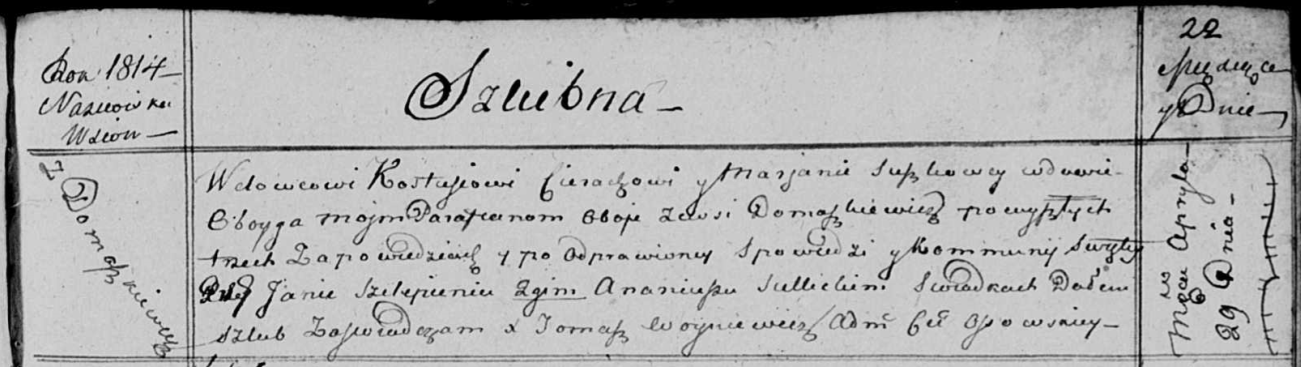 Rok 1814
Nazwiska
Wsiow
Szlubna
22
Miesiące
y Dnie
Z Domaszkiewicz
Wdowcowi Kostusiowi Cierachowi y Marjanie wdowie
Oboyga mojm Parafianom oboje zewsi Domaszkiewicz powyszłych
trzech Zapowiedziach y po odprawioney Spowiedzi y Kommunij Swiętey
Przy Janie Szelepieniu Ananiuszu Świadkach Dałem
szlub Zaświadczam x Tomasz Woyniewicz Adm̃ Cer̃ Osowskiey
w Mcu Apryla
29 Dnia